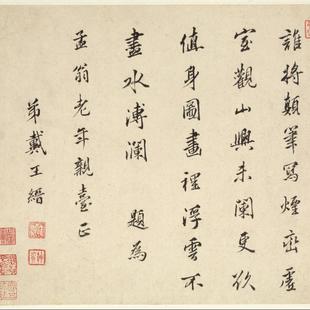 誰將顛筆寫煙巒虛
室觀山興未闌更欲
值身圖畫裡浮雲不
盡水溥瀾 題為
孟翁老年親臺正
弟戴王縉